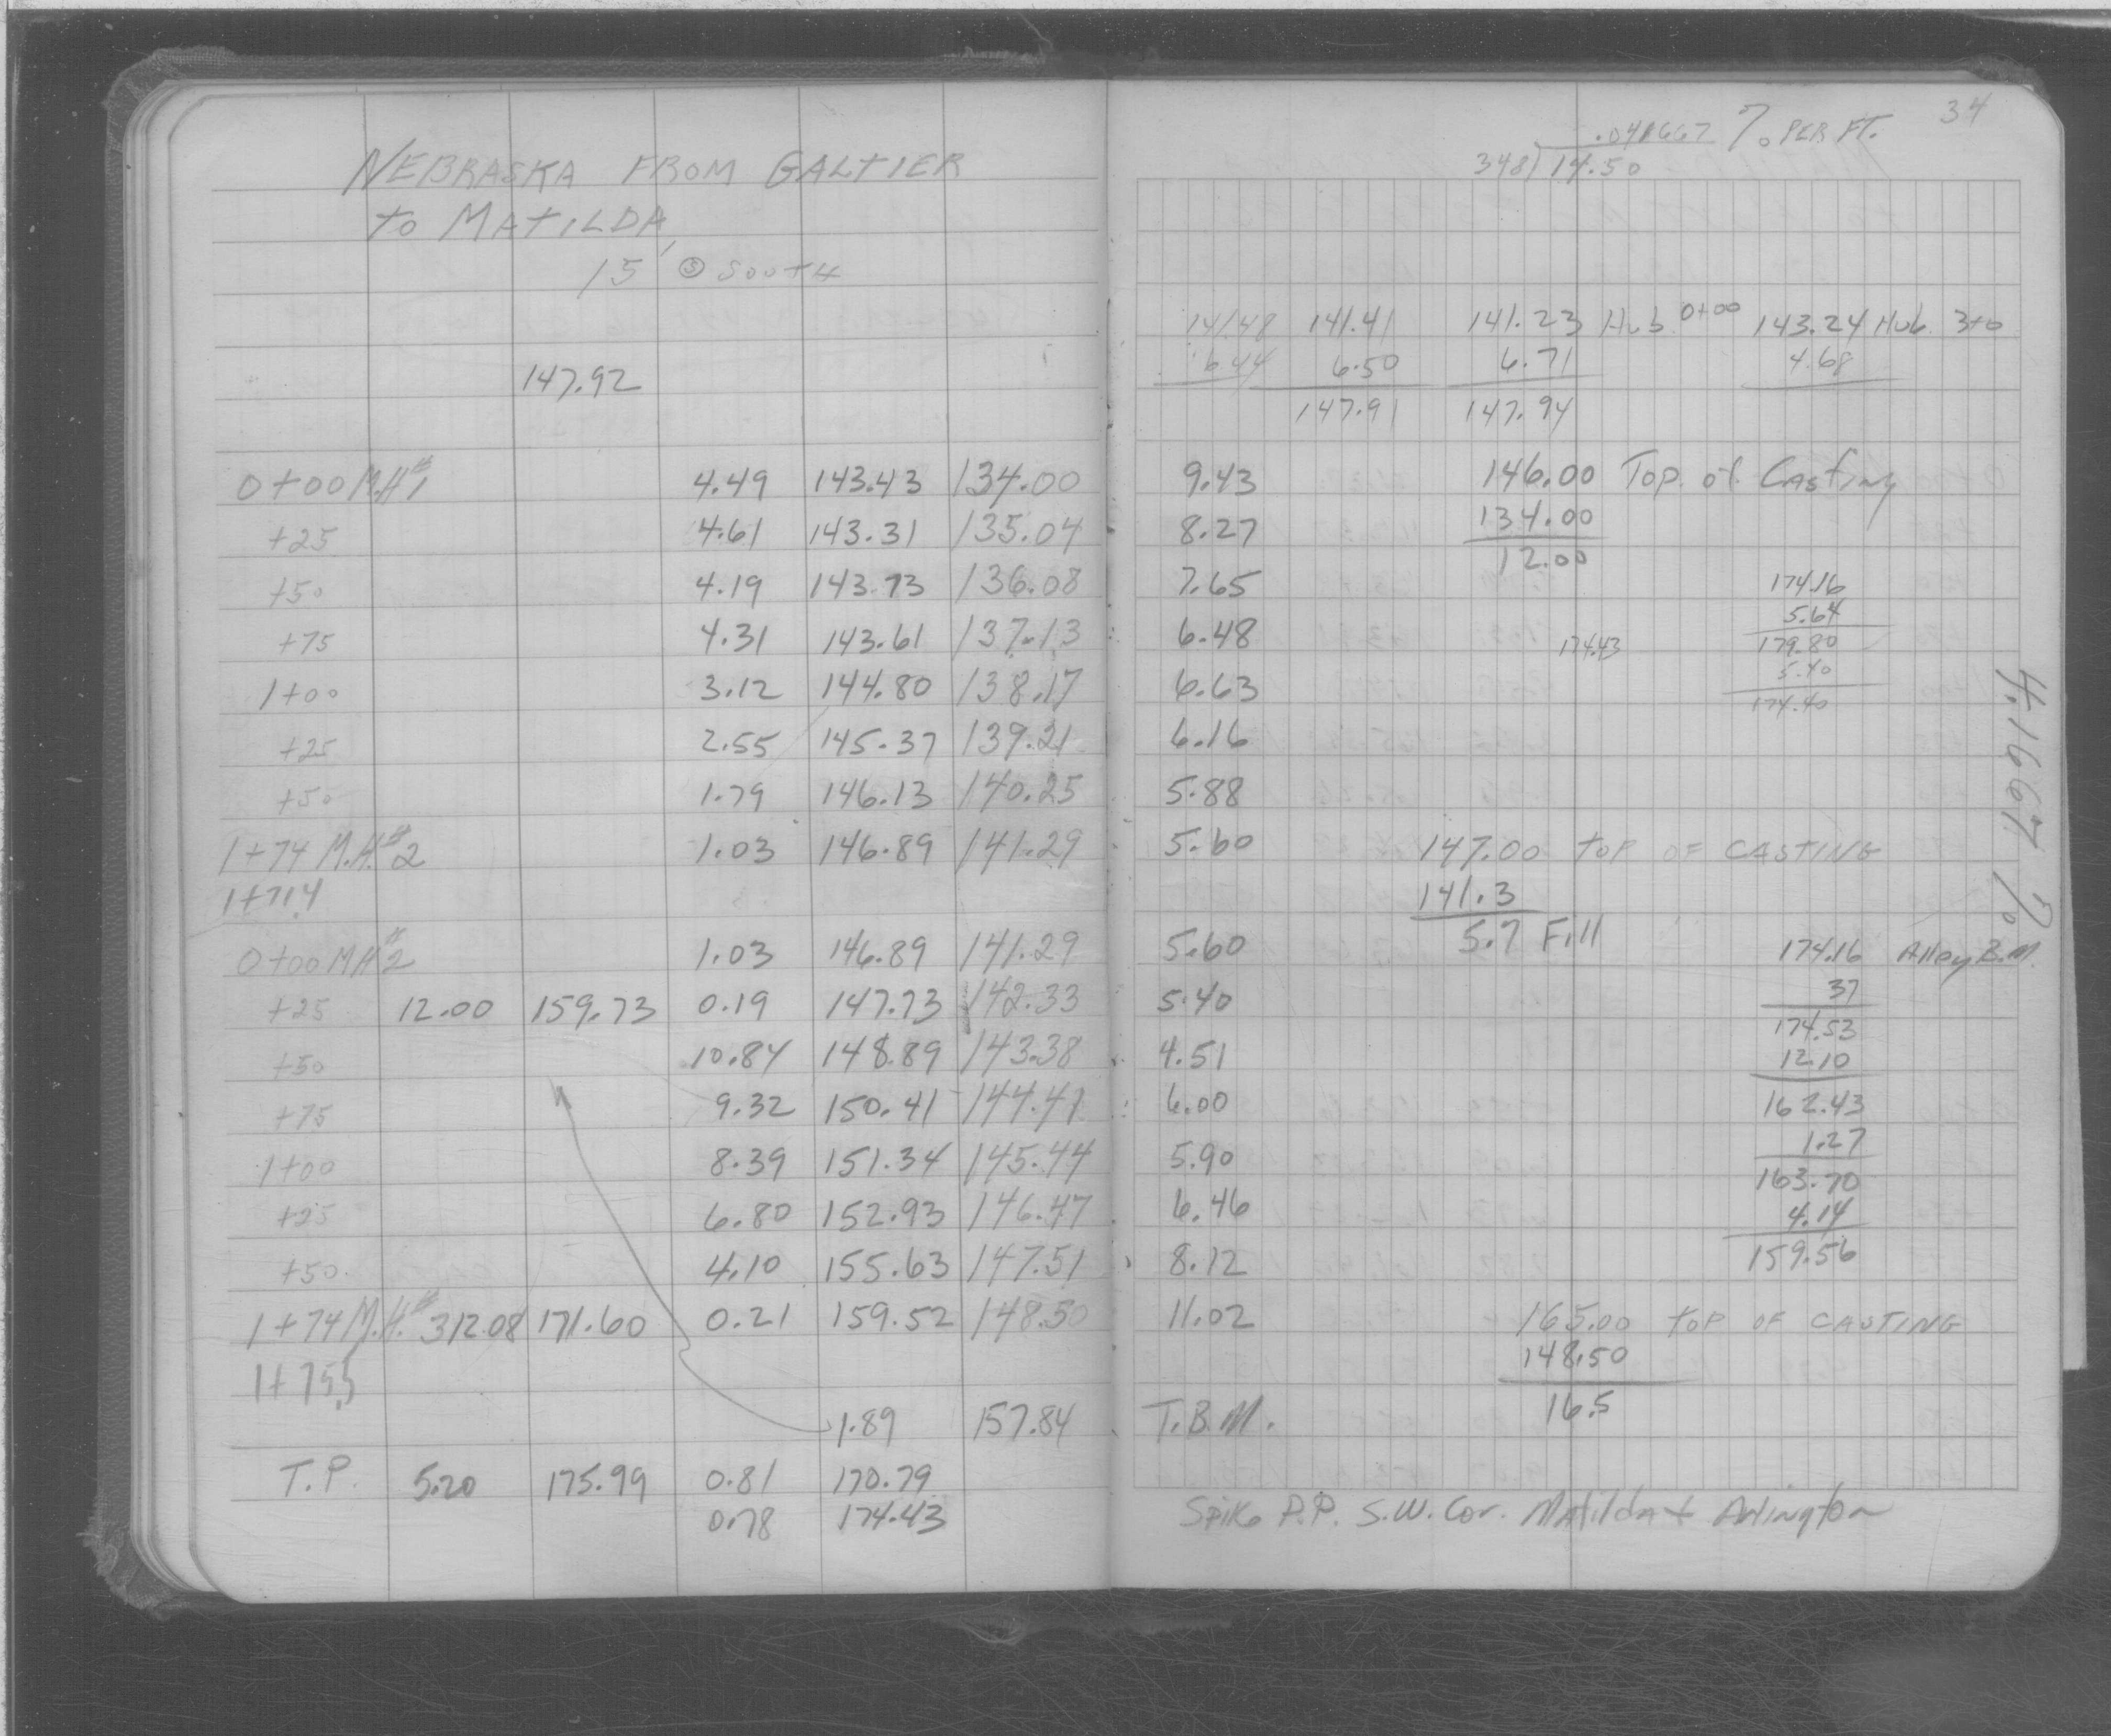 NEBRASKA FROM GALTIER
TO MATILDA
15' Ⓢ SOUTH
147.92
0+00 M.H.#1 4.49 143.43 134.00
+25 4.61 143.31 135.04
+50 4.19 143.73 136.08
+75 4.31 143.61 137.13
1+00 3.12 144.80 138.17
+25 2.55 145.37 139.21
+50 1.79 146.13 140.25
1+74 M.H.#2 1.03 146.89 141.29
1+71.4
0+00 MH#2 1.03 146.89 141.29
+25 12.00 159.73 0.19 147.73 142.33
+50 10.84 148.89 143.38
+75 9.32 150.41 144.41
1+00 8.39 151.34 145.44
+25 6.80 152.93 146.47
+50 4.10 155.63 147.51
1+74 M.H.#3 12.08 171.60 0.21 159.52 148.50
1+75.5
1.89 157.84
T.P. 5.20 175.99 0.81 170.79
0.78 174.43
34
.041667 % PER FT.
348) 14.50
141.48 141.41 141.23 Hub 0+00 143.24 Hub 3+0
6.44 6.50 6.71 4.68
147.91 147.94
9.43 146.00 Top of Casting
8.27 134.00
12.00
7.65 174.16
5.64
6.48 174.43 179.80
5.40
6.63 174.40
6.16
5.88
5.60 147.00 TOP OF CASTING
141.3
5.60 5.7 Fill 174.16 Alley B.M.
5.40 37
174.53
4.51 12.10
6.00 162.43
1.27
5.90 163.70
6.46 4.14
8.12 159.56
11.02 165.00 TOP OF CASTING
148.50
T.B.M. 16.5
Spike P.P. S.W. Cor. Matilda + Arlington
4.1667 %